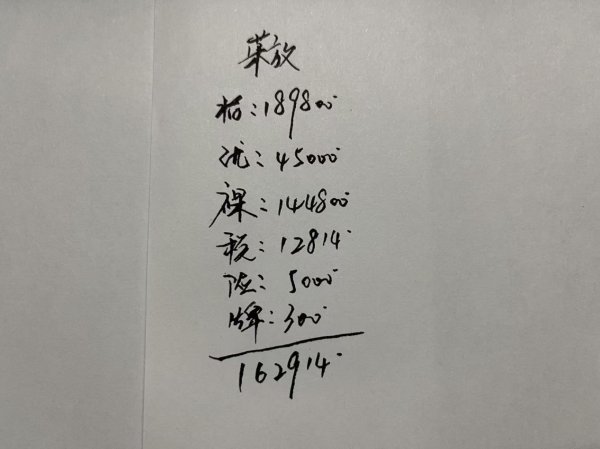 英放
指:189800
优:45000
裸:144800
税:12814
险:5000
牌:300
162914